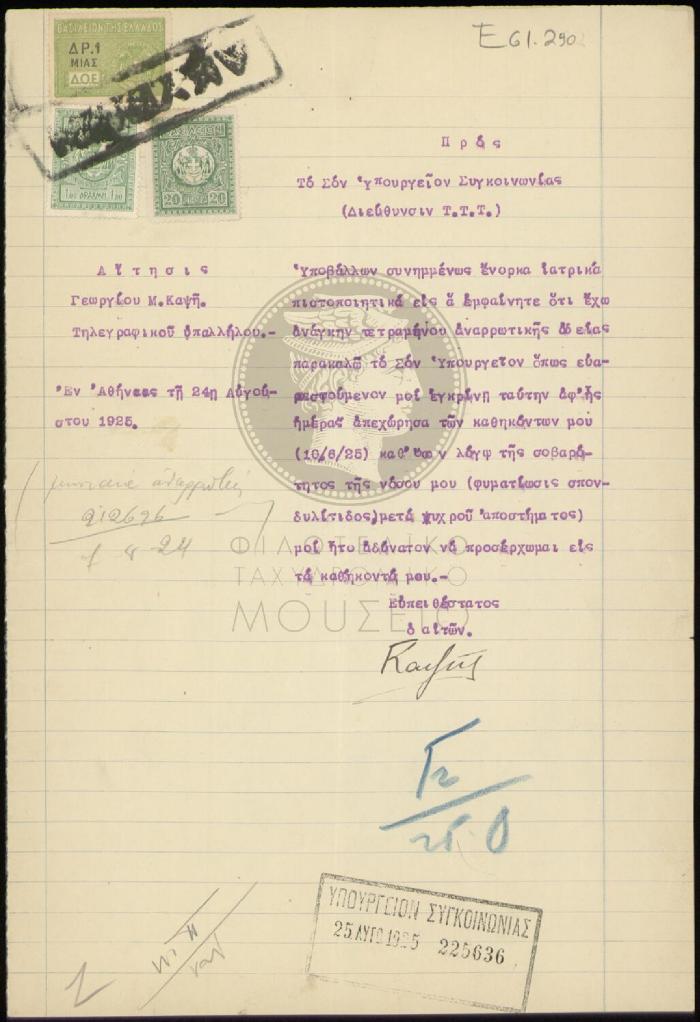 Ε 61.290
ΒΑΣΙΛΕΙΟΝ ΤΗΣ ΕΛΛΑΔΟΣ
ΔΡ.1
ΜΙΑΣ
ΔΟΕ
20 20
Πρός
Τό Σόν Ὑπουργεῖον Συγκοινωνίας
(Διεύθυνσιν Τ.Τ.Τ.)
Αἴτησις
Γεωργίου Μ.Καψῆ.
Τηλεγραφικοῦ ὑπαλλήλου.-
Ἐν Ἀθήναις τῇ 24η Αὐγού-
στου 1925.
Ὑποβάλλων συνημμένως ἔνορκα ἰατρικά
πιστοποιητικά εἰς ἅ ἐμφαίνητε ὅτι ἔχω
ἀνάγκην τετραμήνου ἀναρρωτικῆς ἀδείας
παρακαλῶ τό Σόν Ὑπουργεῖον ὅπως εὐα-
ρεστούμενον μοί ἐγκρίνῃ ταύτην ἀφ'ἧς
ἡμέρας ἀπεχώρησα τῶν καθηκόντων μου
(10/6/25) καθ'ὅσον λόγῳ τῆς σοβαρό-
τητος τῆς νόσου μου (φυματίωσις σπον-
δυλίτιδος)μετά ψυχροῦ ἀποστήματος)
μοί ἦτο ἀδύνατον νά προσέρχωμαι εἰς
τά καθήκοντά μου.-
Εὐπειθέστατος
ὁ αἰτῶν.
Καψῆς
212696
ΦΙΛΟΤΕΛΙΚΟ
ΤΑΧΥΔΡΟΜΙΚΟ
ΜΟΥΣΕΙΟ
ΥΠΟΥΡΓΕΙΟΝ ΣΥΓΚΟΙΝΩΝΙΑΣ
25 ΑΥΓΟ 1925 225636